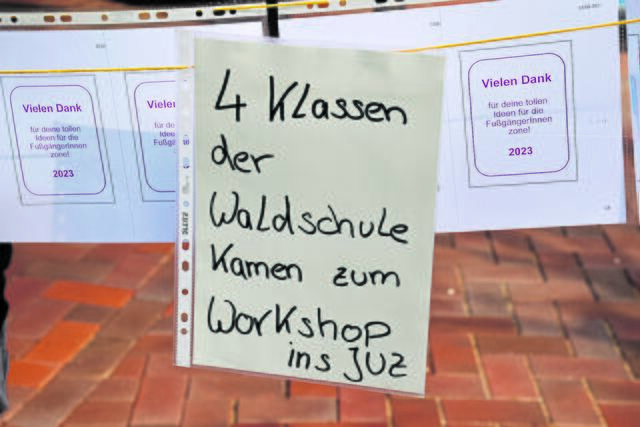 Vielen Dank
für deine tollen
Ideen für die
FußgängerInnen
zone!
2023
4 Klassen
der
Waldschule
Kamen zum
Workshop
ins JUZ
Vielen Dank
für deine tollen
Ideen für die
FußgängerInnen
zone!
2023